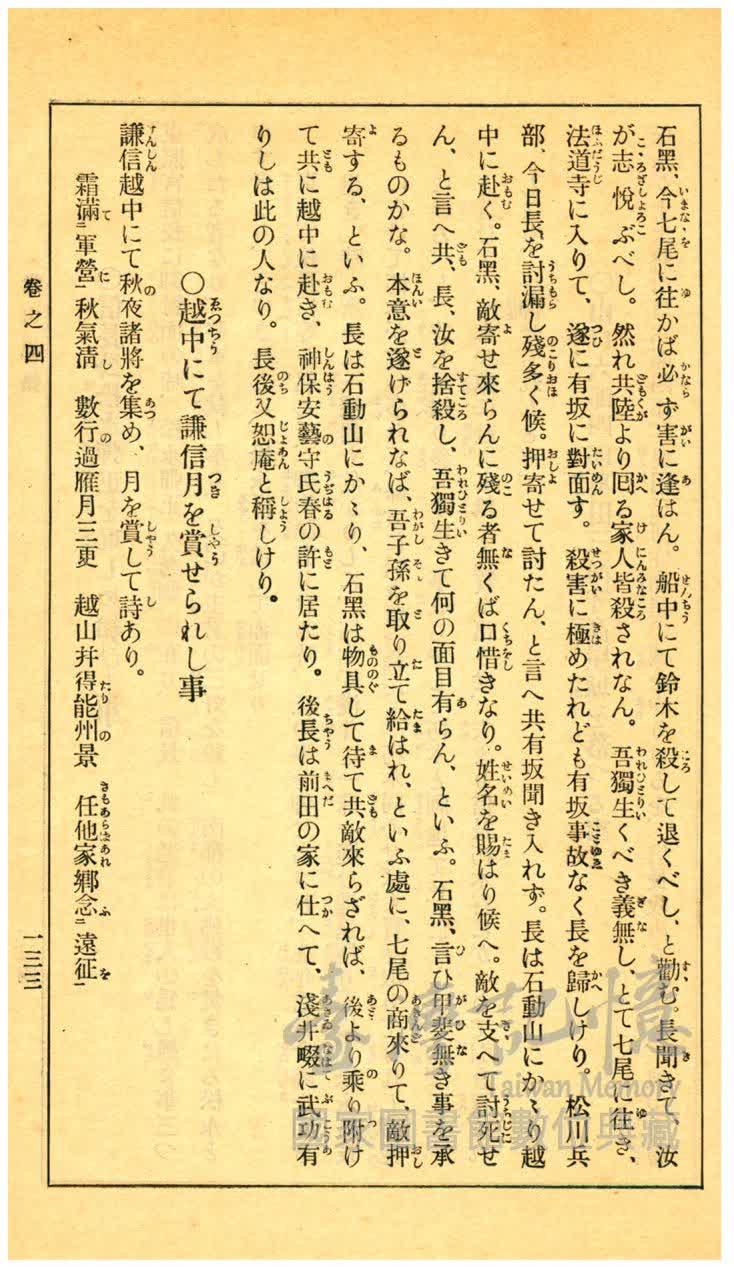 石黑、今七尾に往かば必ず害に逢はん。船中にて鈴木を殺して退くべし、と勸む。長聞きて、汝
が志悅ぶべし。然れ共陸より囘る家人皆殺されなん。吾獨生くべき義無し、とて七尾に往き、
法道寺に入りて、遂に有坂に對面す。殺害に極めたれども有坂事故なく長を歸しけり。松川兵
部、今日長を討漏し殘多く候。押寄せて討たん、と言へ共有坂聞き入れず。長は石動山にかゝり越
中に赴く。石黑、敵寄せ來らんに殘る者無くば口惜きなり。姓名を賜はり候へ。敵を支へて討死せ
ん、と言へ共、長、汝を捨殺し、吾獨生きて何の面目有らん、といふ。石黑、言ひ甲斐無き事を承
るものかな。本意を遂げられなば、吾子孫を取り立て給はれ、といふ處に、七尾の商來りて、敵押
寄する、といふ。長は石動山にかゝり、石黑は物具して待て共敵來らざれば、後より乘り附け
て共に越中に赴き、神保安藝守氏春の許に居たり。後長は前田の家に仕へて、淺井畷に武功有
りしは此の人なり。長後又恕庵と稱しけり。
○越中にて謙信月を賞せられし事
謙信越中にて秋夜諸將を集め、月を賞して詩あり。
霜滿二軍營一秋氣淸 數行過雁月三更 越山幷得能州景 任他家鄕念二遠征一
卷之四
一三三
臺灣記憶
Taiwan Memory
國家圖書館數位典藏